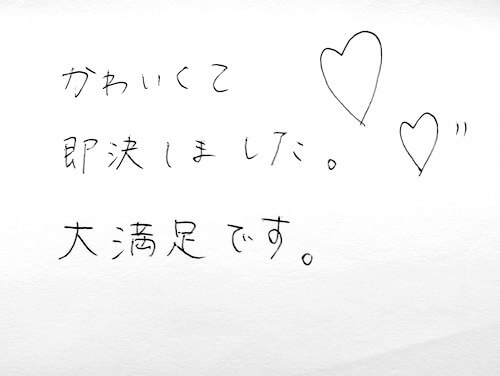 かわいくて
即決しました。
大満足です。